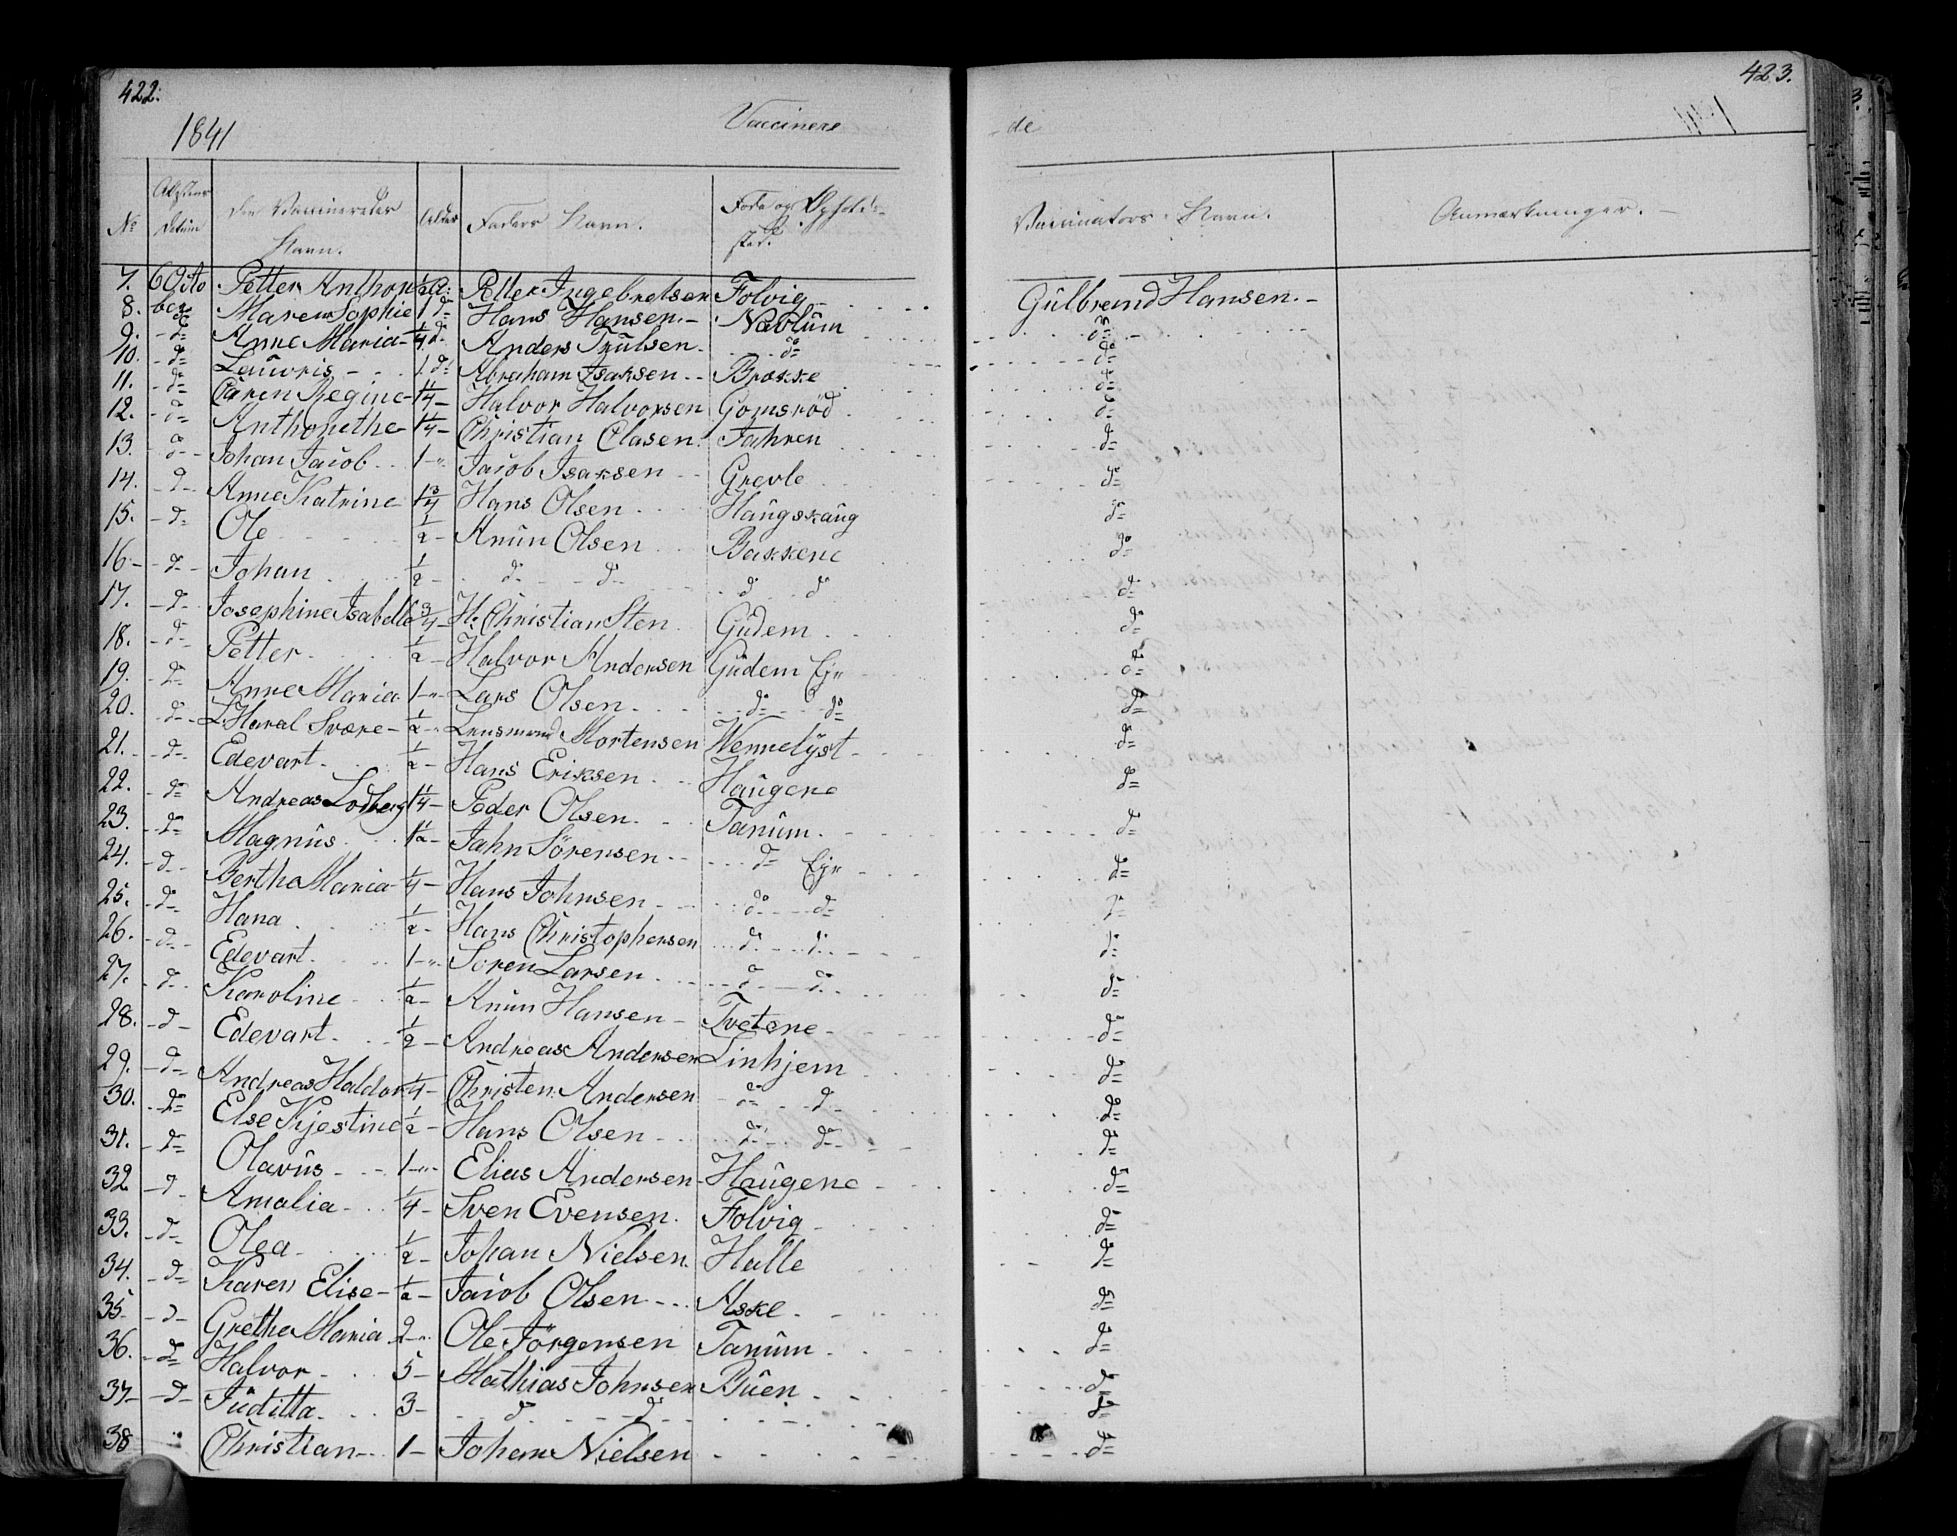 422. 423.
1841 Vaccinere - de
No Datum Den Vaccineredes Navn. Alder Faders Navn. Føde og Opholds- sted. Vaccinators Navn. Anmærkninger.
7. 6 Octo Petter Anthon 1/2 Petter Ingebretsen Folvig Gulbrand Hansen.
8. ber Maren Sophie 1 do Hans Hansen Navlum do
9. do Anne Maria 1/4 do Anders Trulsen do do
10. do Lauvris 1 do Abraham Isaksen Brække do
11. do Caren Regine 1 1/4 Halvor Halvorsen Gomsrød do
12. do Anthonethe 1 1/4 Christian Olasen Fahren do
13. do Johan Jacob 1 Jacob Isaksen Grevle do
14. do Anne Katrine 1 3/4 Hans Olsen Haugskaug do
15. do Ole 1/2 Anun Olsen Bakkene do
16 do Johan 1/2 do do do do do
17. do Josephine Isabella 3/4 H: Christian Sten Gudem do
18. do Petter 1/2 Halvor Andersen Gudem Eje do
19. do Anne Maria 1 Lars Olsen do do do
20. do L. Haral Svære 1/2 Lensmand Mortensen Wennelyst do
21. do Edevart 1/2 Hans Eriksen Haugene do
22. do Andreas Lodberg 1 1/4 Peder Olsen Tanum do
23. do Magnus 1 1/2 Jahn Sörensen do Eje do
24. do Berthe Maria 1/4 Hans Johnsen do do do
25. do Hana 1/2 Hans Christophersen do do do
26. do Edevart 1 Soren Larsen do do do
27. do Karoline 1/2 Anun Hansen Tvetene do
28. do Edevart 1/2 Andreas Andersen Linhjem do
29. do Andreas Haldor 1/4 Christen Andersen do do do
30. do Else Kjestine 1/2 Hans Olsen do do do
31. do Olavus 1 Elias Andersen Haugene do
32 do Amalia 1/4 Sven Evensen Folvig do
33. do Olea 1/2 Johan Nielsen Halle do
34. do Karen Elise 1/2 Jacob Olsen Aske do
35 do Grethe Maria 2 Ole Jörgensen Tanum do
36. do Halvor 5 Mathias Johnsen Buen do
37 do Juditta 3 do do do
38 Christian 1 Johan Nielsen do